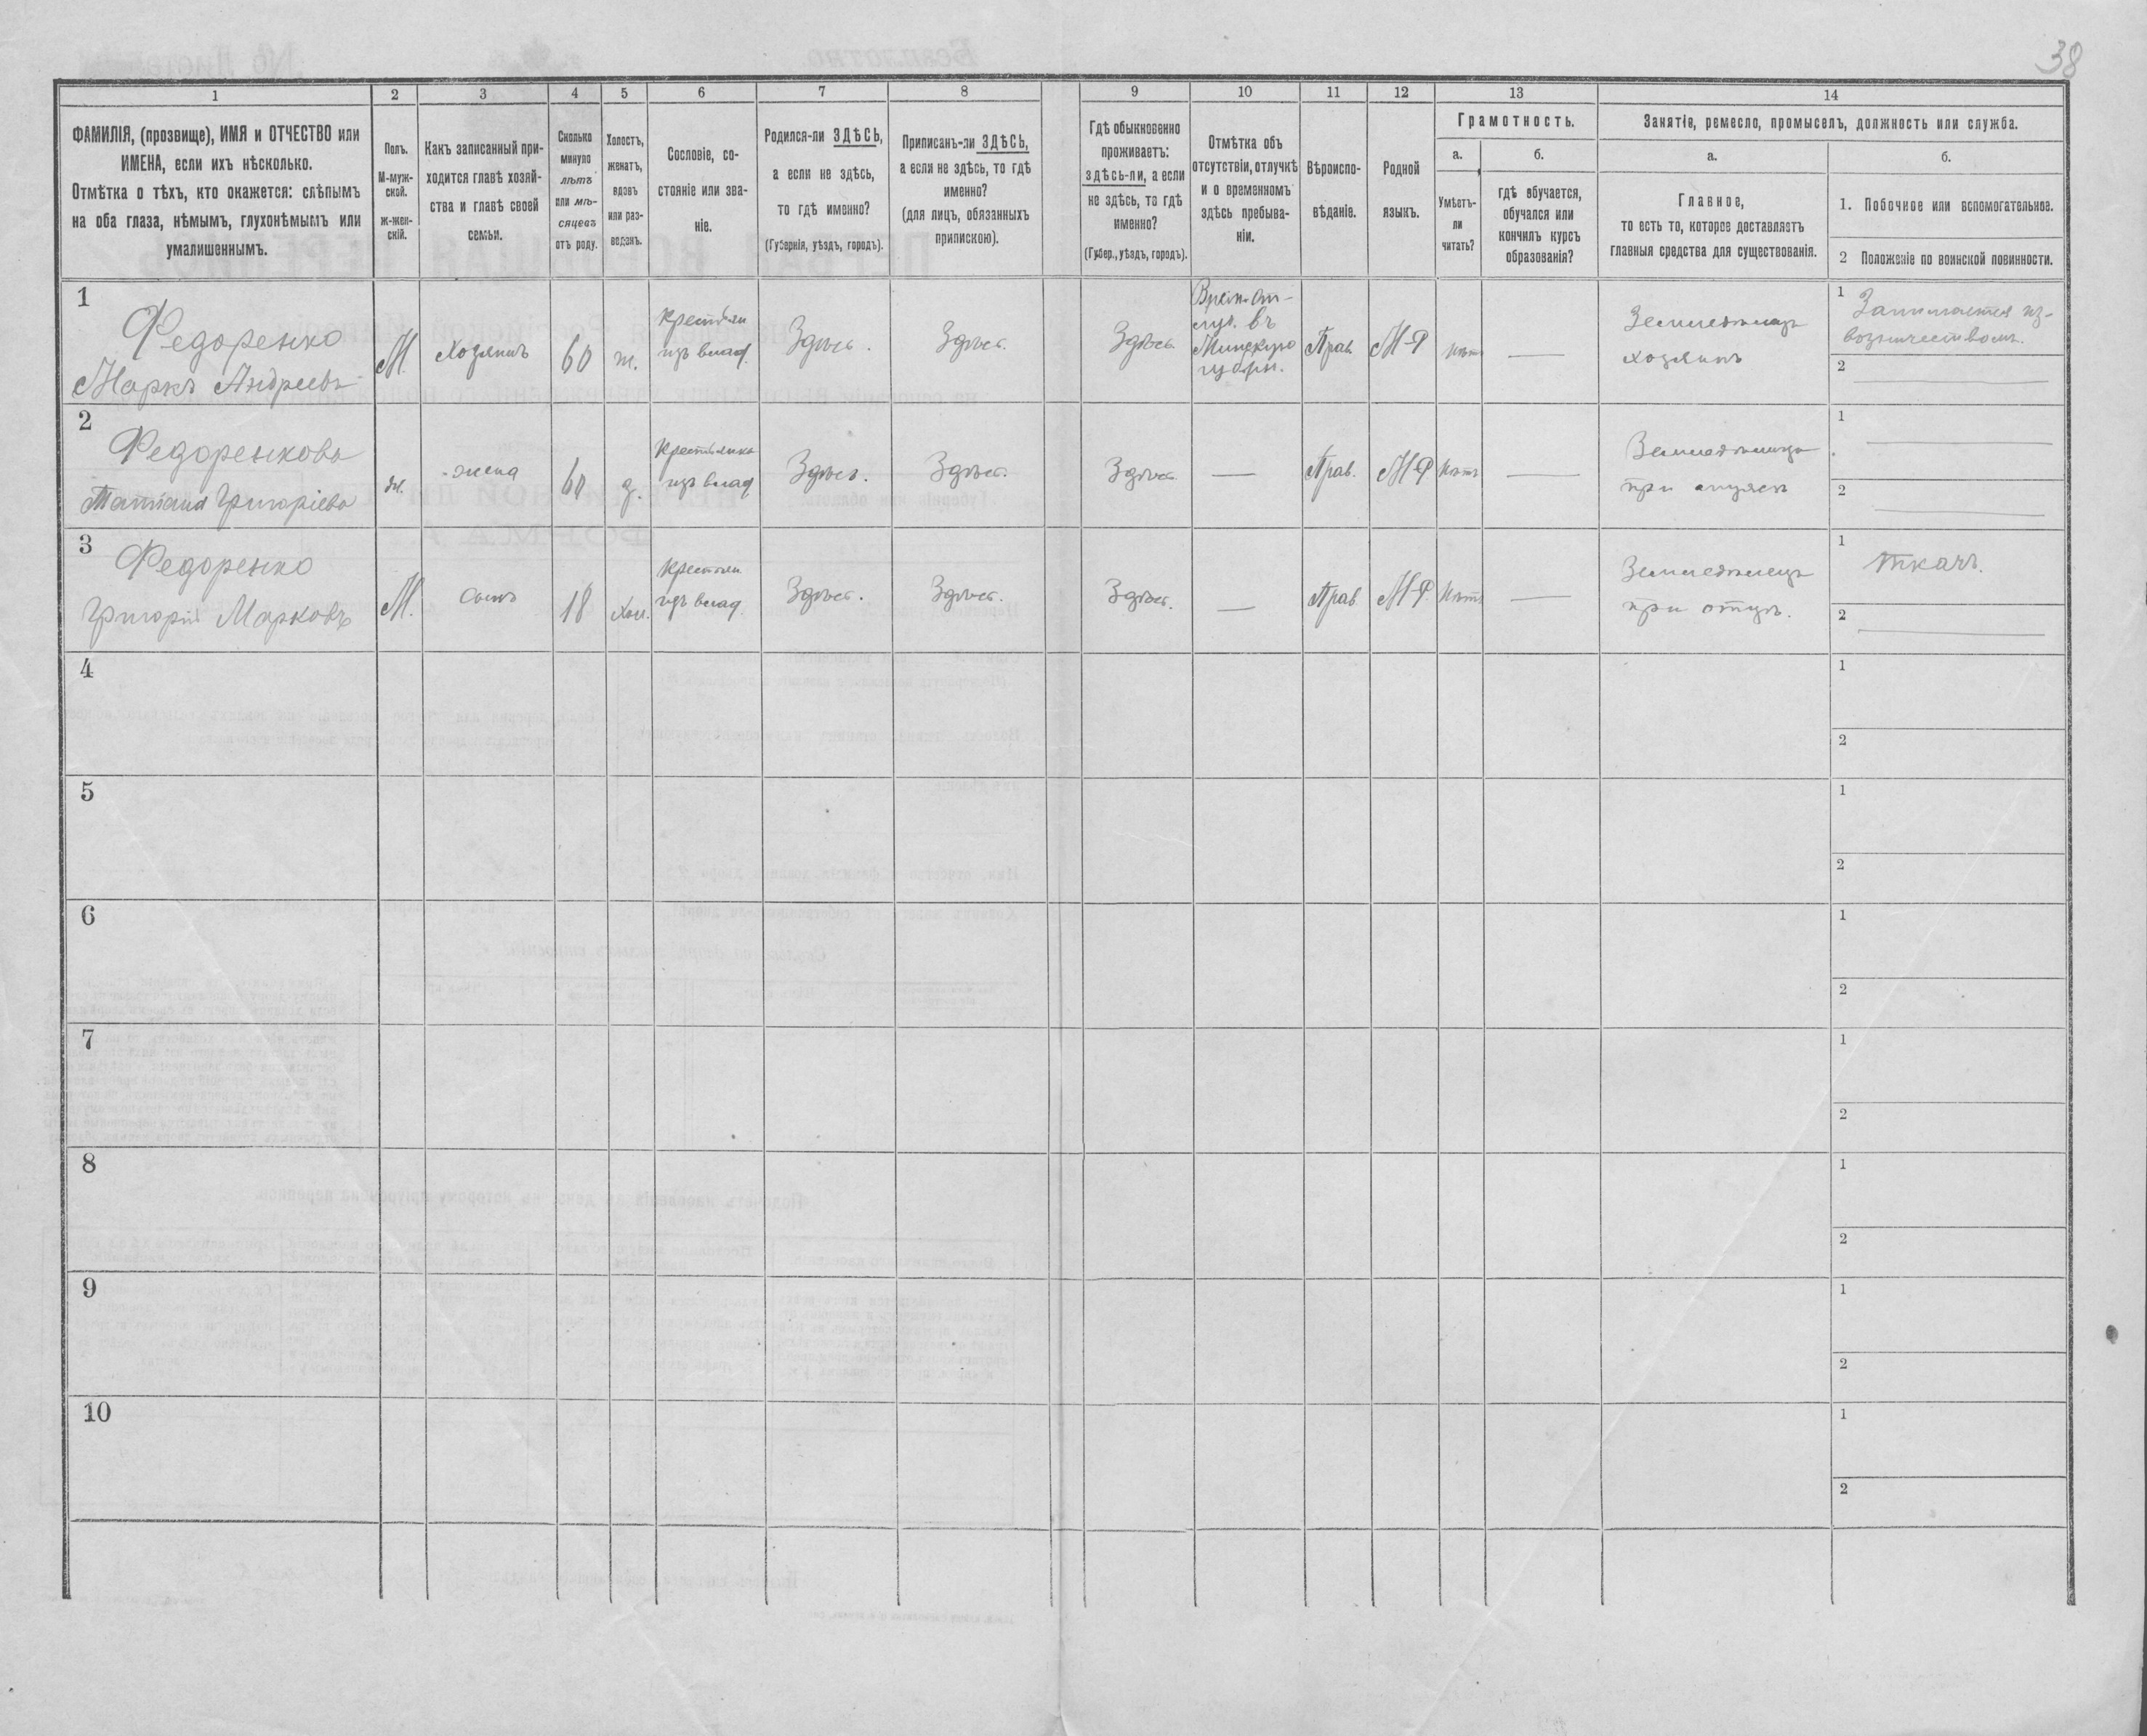 38
1 2 3 4 5 6 7 8 9 10 11 12 13 14
ФАМИЛІЯ, (прозвище), ИМЯ и ОТЧЕСТВО или
ИМЕНА, если ихъ нѣсколько.
Отмѣтка о тѣхъ, кто окажется: слѣпымъ
на оба глаза, нѣмымъ, глухонѣмымъ или
умалишеннымъ.
Полъ.
М-муж-
ской.
ж-жен-
скій.
Какъ записанный при-
ходится главѣ хозяй-
ства и главѣ своей
семьи.
Сколько
минуло
лѣтъ
или мѣ-
сяцевъ
отъ роду.
Холостъ,
женатъ,
вдовъ
или раз-
веденъ.
Сословіе, со-
стояніе или зва-
ніе.
Родился-ли ЗДѢСЬ,
а если не здѣсь,
то гдѣ именно?
(Губернія, уѣздъ, городъ).
Приписанъ-ли ЗДѢСЬ,
а если не здѣсь, то гдѣ
именно?
(для лицъ, обязанныхъ
припискою).
Гдѣ обыкновенно
проживаетъ:
здѣсь-ли, а если
не здѣсь, то гдѣ
именно?
(Губер., уѣздъ, городъ).
Отмѣтка объ
отсутствіи, отлучкѣ
и о временномъ
здѣсь пребыва-
ніи.
Вѣроиспо-
вѣданіе.
Родной
языкъ.
Грамотность.
а.
Умѣетъ-
ли
читать?
б.
гдѣ обучается,
обучался или
кончилъ курсъ
образованія?
Занятіе, ремесло, промыселъ, должность или служба.
а.
Главное,
то есть то, которое доставляетъ
главныя средства для существованія.
б.
1. Побочное или вспомогательное.
2 Положеніе по воинской повинности.
1
Федоренко
Маркъ Андреевъ
М.
Хозяинъ
60
ж.
Крестьян
изъ влад.
Здѣсь.
Здѣсь.
Здѣсь
Врем. от-
луч. въ
Минскую
губерн.
Прав.
М-Р
Нѣтъ
—
Земледѣлецъ
хозяинъ
1 Занимается из-
возничествомъ.
2
2
Федоренкова
Татіана Григоріева
ж.
жена
60
з.
Крестьянка
изъ влад
Здѣсь.
Здѣсь.
Здѣсь
—
Прав.
М-Р
Нѣтъ
—
Земледѣлица
при
1
2
3
Федоренко
Григорій Марковъ
М.
сынъ
18
хол.
Крестьян
изъ влад.
Здѣсь.
Здѣсь.
Здѣсь.
—
Прав
М-Р
Нѣтъ
—
Земледѣлецъ
при отцѣ.
1 ткачъ.
2
4
1
2
5
1
2
6
1
2
7
1
2
8
1
2
9
1
2
10
1
2